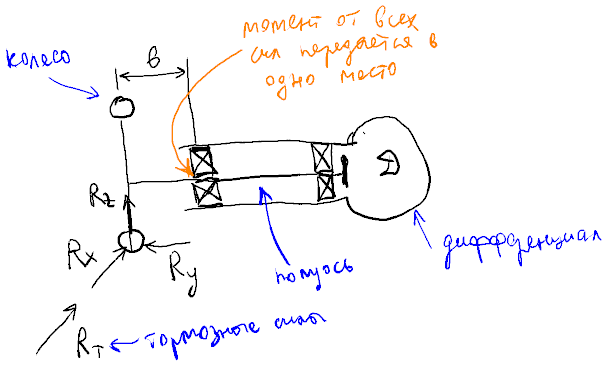 момент от всех
сил передается в
одно место
колесо
в
D
Rz
Rx
Ry
полуось
дифференциал
RT
тормозные силы